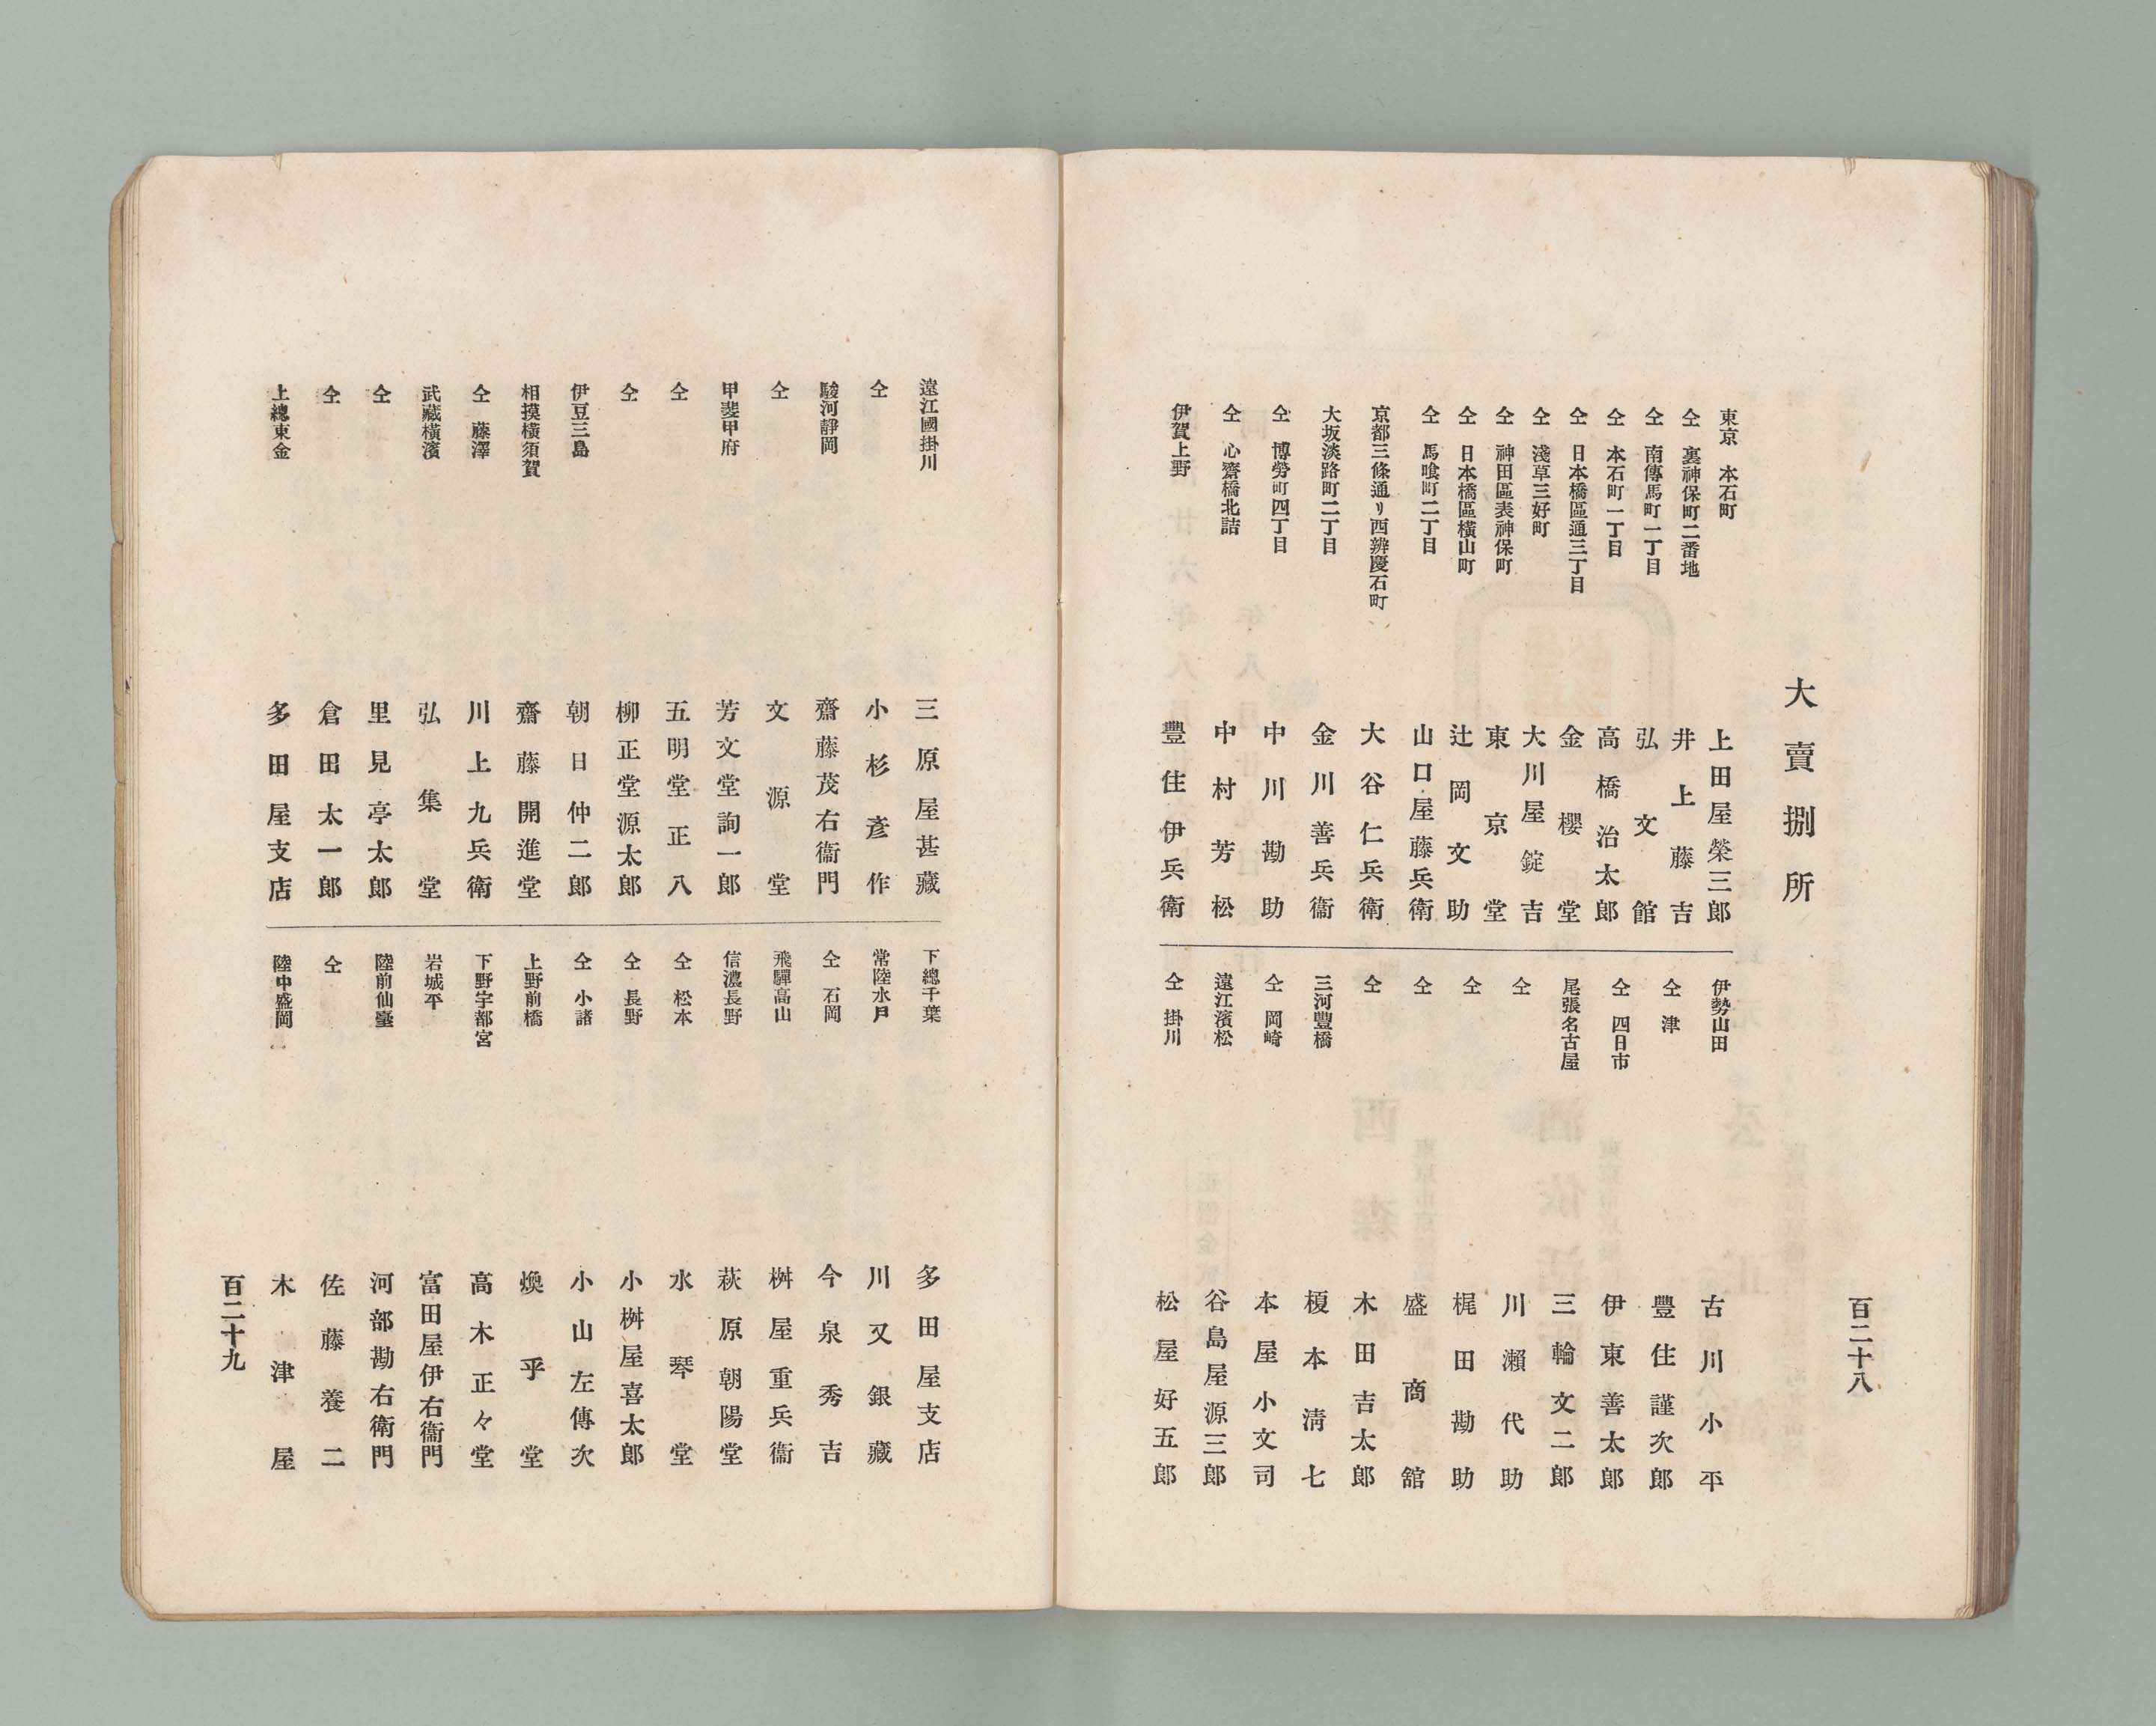 百二十八
大賣捌所
東京　本石町　上田屋榮三郎
仝　裏神保町二番地　井上藤吉
仝　南傳馬町二丁目　弘文館
仝　本石町一丁目　高橋治太郎
仝　日本橋區通三丁目　金櫻堂
仝　淺草三好町　大川屋錠吉
仝　神田區表神保町　東京堂
仝　日本橋區橫山町　辻岡文助
仝　馬喰町二丁目　山口屋藤兵衛
京都三條通リ西辨慶石町　大谷仁兵衛
大坂淡路町二丁目　金川善兵衞
仝　博勞町四丁目　中川勘助
仝　心齋橋北詰　中村芳松
伊賀上野　豐住伊兵衛
伊勢山田　古川小平
仝　津　豐住謹次郎
仝　四日市　伊東善太郎
尾張名古屋　三輪文二郎
仝　川瀨代助
仝　梶田勘助
仝　盛商舘
仝　木田吉太郎
三河豐橋　榎本淸七
仝　岡崎　本屋小文司
遠江濱松　谷島屋源三郎
仝　掛川　松屋好五郎
遠江國掛川　三原屋甚藏
仝　小杉彥作
駿河靜岡　齋藤茂右衞門
仝　文源堂
甲斐甲府　芳文堂詢一郎
仝　五明堂正八
仝　柳正堂源太郎
伊豆三島　朝日仲二郎
相摸橫須賀　齋藤開進堂
仝　藤澤　川上九兵衛
武藏橫濱　弘集堂
仝　里見亭太郎
仝　倉田太一郎
上總東金　多田屋支店
下總千葉　多田屋支店
常陸水戶　川又銀藏
仝　石岡　今泉秀吉
飛驒高山　桝屋重兵衞
信濃長野　萩原朝陽堂
仝　松本　水琴堂
仝　長野　小桝屋喜太郎
仝　小諸　小山左傳次
上野前橋　煥乎堂
下野宇都宮　高木正々堂
岩城平　富田屋伊右衞門
陸前仙臺　河部勘右衛門
仝　佐藤養二
陸中盛岡　木津屋
百二十九